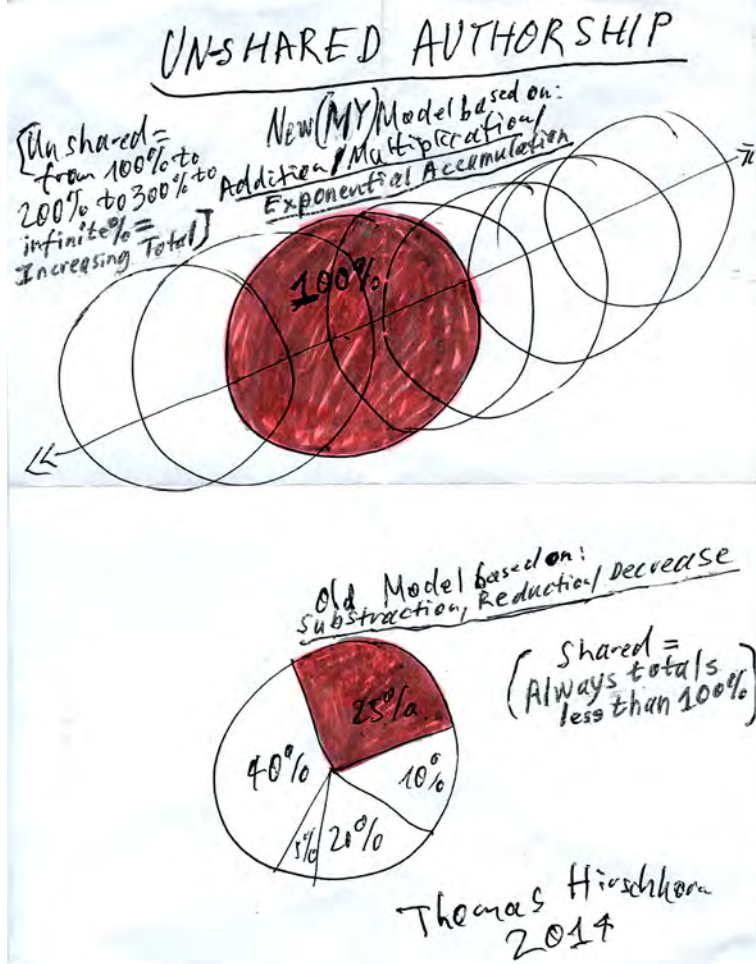 UN-SHARED AUTHORSHIP
New (MY) Model based on:
Addition/Multiplication/
Exponential Accumulation
[Unshared =
from 100% to
200% to 300% to
infinite% =
Increasing Total]
100%
Old Model based on:
Substraction, Reduction/Decrease
(Shared =
Always totals
less than 100%)
25%
40%
10%
5%
20%
Thomas Hirschhorn
2014